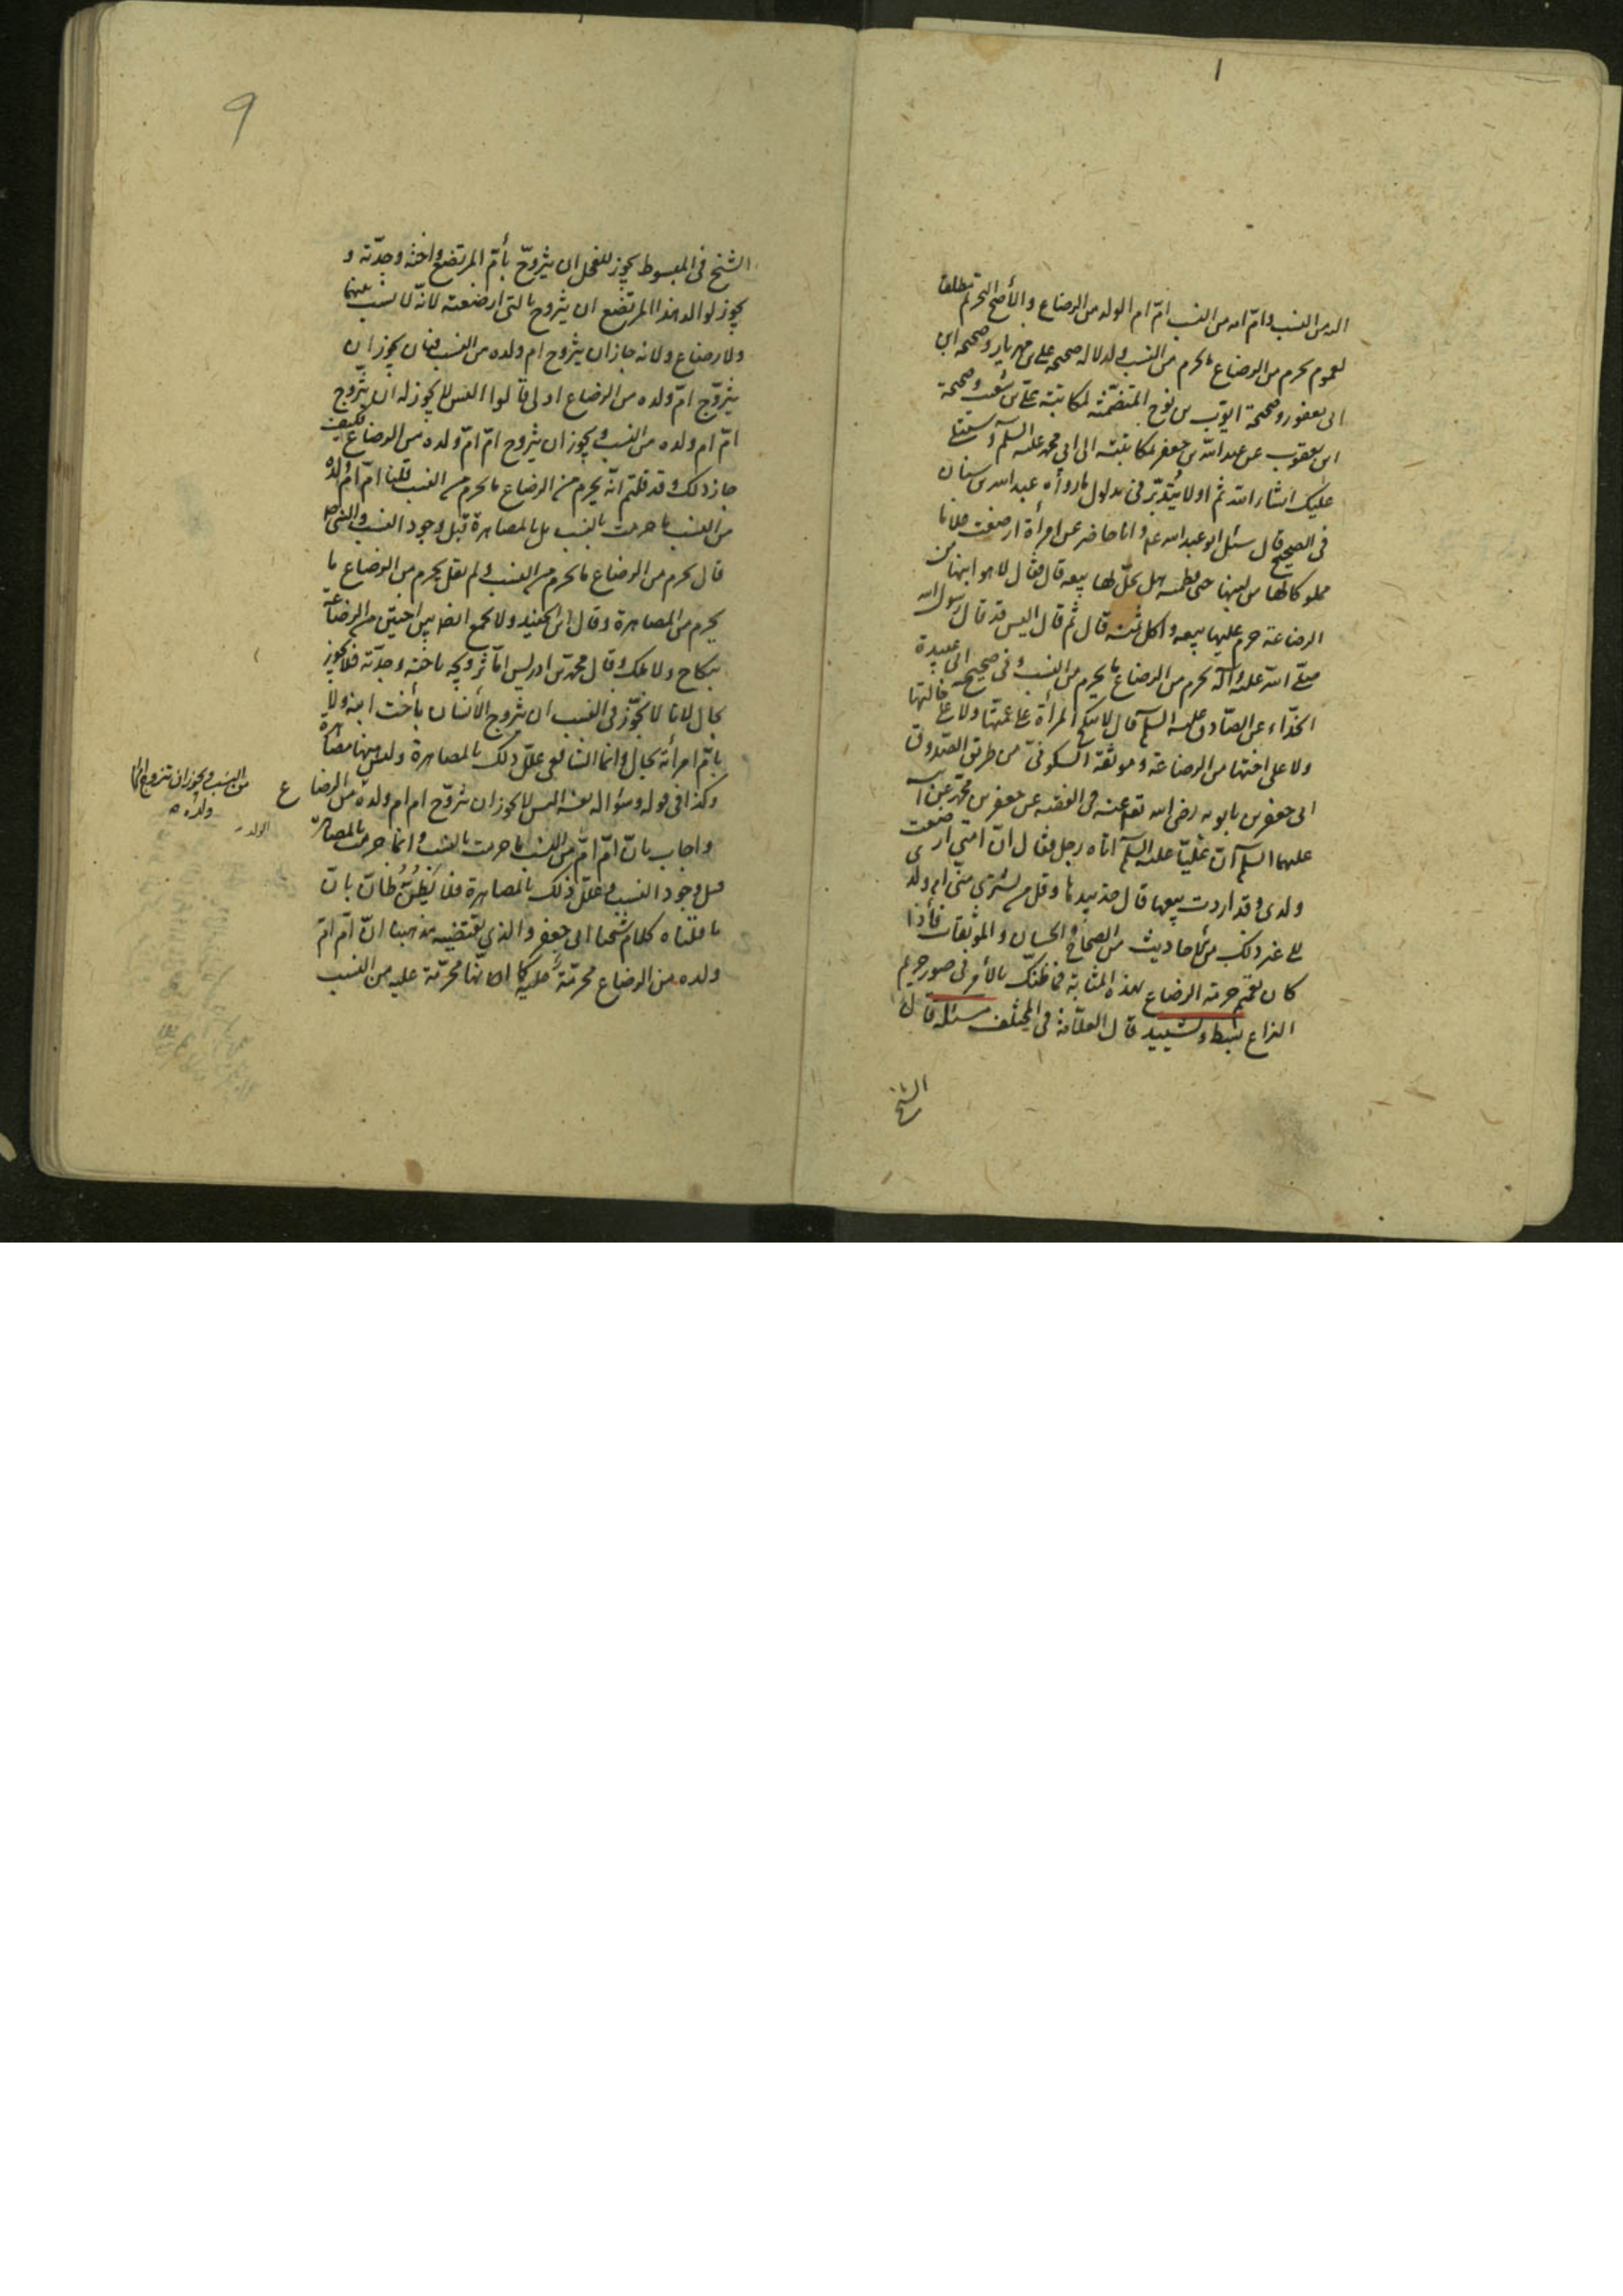 ١
الدمن النسب وامّ امه من النسب امّ ام الولد من الرضاع والأصح التحريم مطلقا
لعموم يحرم من الرضاع ما يحرم من النسب ولدلالة صحيحة علي بن مهزيار وصحيحة ابن
ابى يعفور وصحيحة ايّوب بن نوح المتضمّنة لمكاتبة علىّ بن شعيب وصحيحة
ابن يعقوب عن عبد الله بن جعفر لمكاتبته الى ابى محمد عليه السلم وستتلى
عليك انشاء الله ثم اولا يتدبّر فى مدلول ما رواه عبد الله بن سنان
فى الصحيح قال سئل ابو عبد الله ع وانا حاضر عن امرأة ارضعت غلاما
مملوكا لها من لبنها حتى فطمته هل يحلّ لها بيعه قال فقال لا هو ابنها من
الرضاعة حرم عليها بيعه واكل ثمنه قال ثم قال اليس قد قال رسول الله
صلّى الله عليه وآله يحرم من الرضاع ما يحرم من النسب وفى صحيح ابى عبيدة
الحذّاء عن الصّادق عليه السلم قال لا تنكح المرأة على عمّتها ولا على خالتها
ولا على اختها من الرضاعة وموثقة السكونىّ من طريق الصّدوق
ابى جعفر بن بابويه رضى الله تعم عنه فى الفقيه عن جعفر بن محمّد عن ابيه
عليهما السلم انّ عليّا عليه السلم اتاه رجل فقال انّ امتى ارضعت
ولدى وقد اردت بيعها قال خذ بيدها وقل من يشترى منّى ام ولدى
الى غير ذلك من الأحاديث من الصحاح والحسان والموثقات فأذا
كان تعميم حرمة الرضاع بهذه المثابة فما ظنّك بالأمر فى صور حريم
النزاع بسط وتشييد قال العلّامة فى المختلف مسئلة قال
الشيخ
٩
الشيخ فى المبسوط يجوز للفحل ان يتزوّج بأمّ المرتضع واخته وجدّته و
يجوز لوالد هذا المرتضع ان يتزوج بالتى ارضعته لانّه لا نسب بينهما
ولا رضاع ولانه جاز ان يتزوج ام ولده من النسب فبان يجوز ان
يتزوّج امّ ولده من الرضاع اولى قالوا اليس لا يجوز له ان يتزوج
امّ ام ولده من النسب ويجوز ان يتزوج امّ امّ ولده من الرضاع فكيف
جاز ذلك وقد قلتم انّه يحرم من الرضاع ما يحرم من النسب قلنا امّ امّ ولده
من النسب ما حرمت بالنسب بل بالمصاهرة قبل وجود النسب والنبى ص
قال يحرم من الرضاع ما يحرم من النسب ولم يقل يحرم من الرضاع ما
يحرم من المصاهرة وقال ابن الجنيد ولا يجمع ايضا بين اختين من الرضاعة
بنكاح ولا ملك وقال محمد بن ادريس امّا تزويجه باخته وجدّته فلا يجوز
بحال لانا لا نجوّز فى النسب ان يتزوج الأنسان بأخت ابنه ولا
بامّ امرأته بحال وانما الشافعى علل ذلك بالمصاهرة وليس ههنا مصاهرة
وكذا فى قوله وسؤاله نفسه اليس لا يجوز ان يتزوّج ام ام ولده من الرضاع
واجاب بانّ امّ امّ من النسب ما حرمت بالنسب وانما حرمت بالمصاهرة
قبل وجود النسب وعلل ذلك بالمصاهرة فلا يظنّ ظانّ بانّ
ما قلناه كلام شيخنا ابى جعفر والذي يقتضيه مذهبنا انّ امّ امّ
ولده من الرضاع محرمّة عليه كما انّها محرّمة عليه من النسب
من النسب ويجوز ان تتزوج امّ ام
ولده
الولد